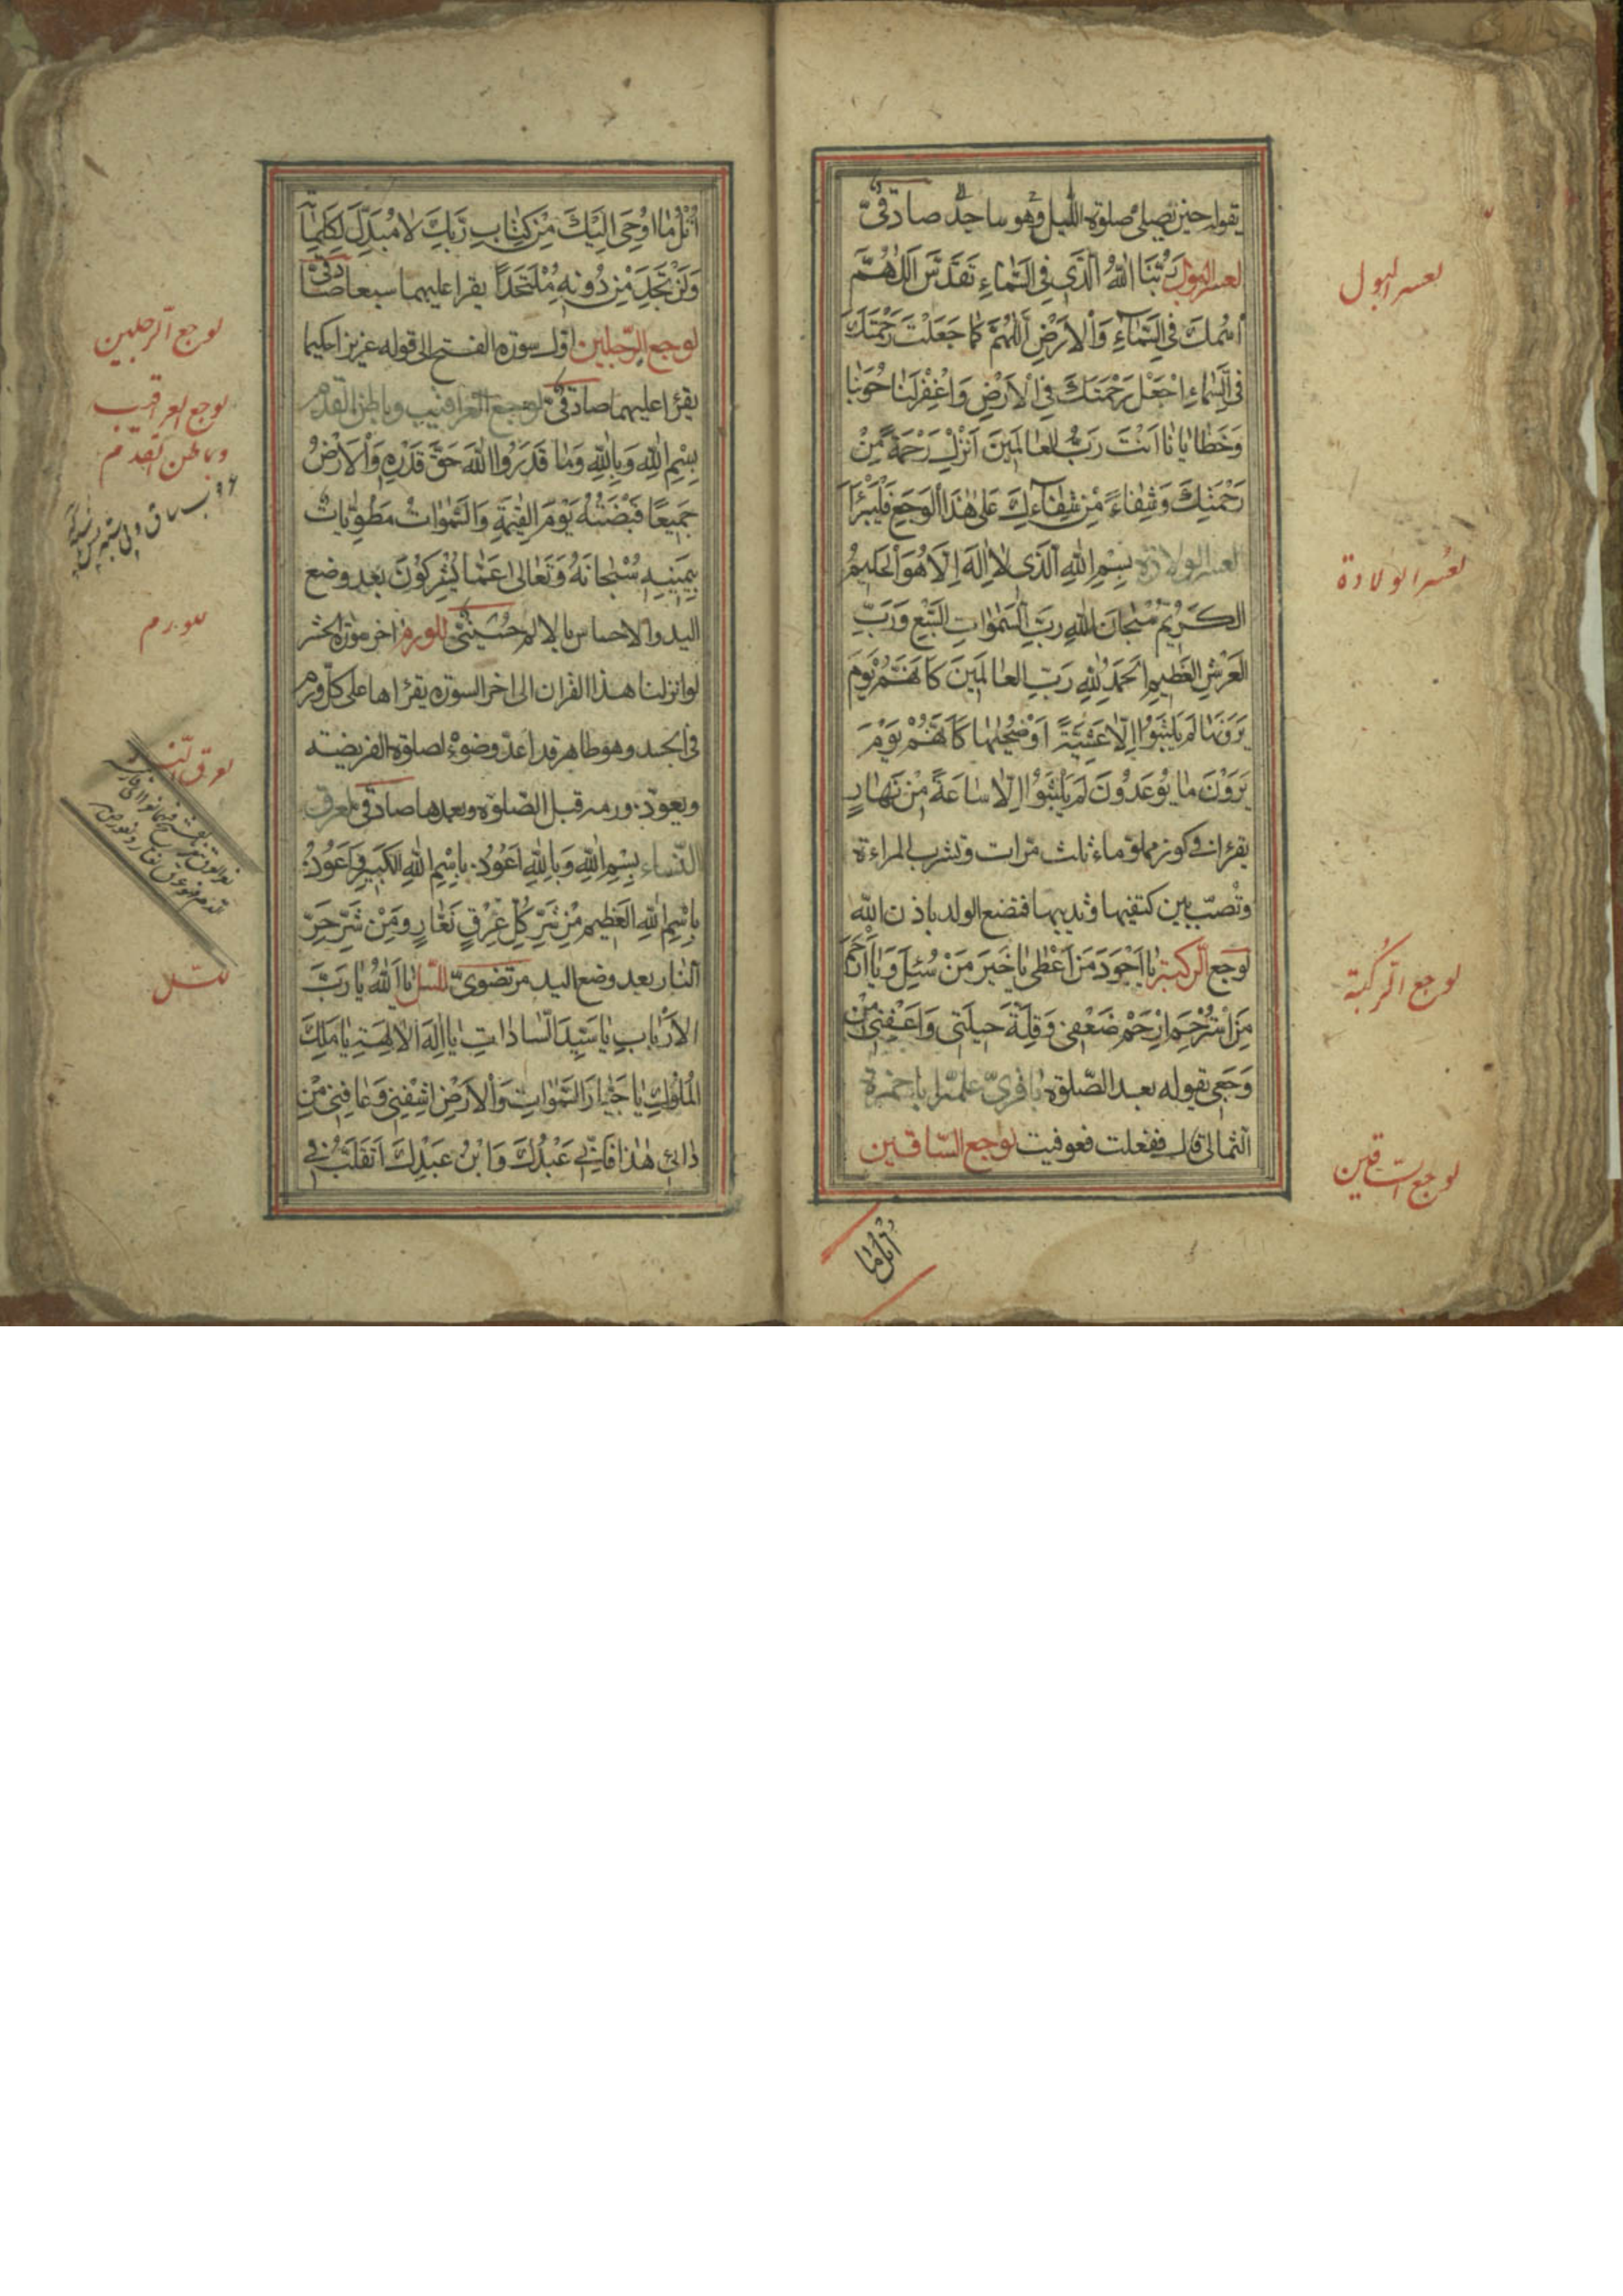 يقوله حين تصلى صلوة الليل وهو ساجد صادقىّ
لعسر البول رَبُّنَا اللهُ الَّذى فِى السَّمٰاءِ تَقَدَّسَ اَللّٰهُمَّ
اسْمُكَ فِى السَّمٰاءِ وَالْاَرْضِ اَللّٰهُمَّ كَمٰا جَعَلْتَ رَحْمَتَكَ
فِى السَّمٰاءِ اِجْعَلْ رَحْمَتَكَ فِى الْاَرْضِ وَاغْفِرْلَنٰا حُوبَنٰا
وَخَطٰايٰانٰا اَنْتَ رَبُّ الْعٰالَمينَ اَنْزِلْ رَحْمَةً مِنْ
رَحْمَتِكَ وَشِفٰاءً مِنْ شِفٰاءِكَ عَلىٰ هٰذَا الْوَجَعِ فَلْيَبْرَأْ
لعسر الولادة بِسْمِ اللهِ الَّذى لٰا اِلٰهَ اِلّٰا هُوَ الْحَليمُ
الْكَريمُ سُبْحٰانَ اللهِ رَبِّ السَّمٰوٰاتِ السَّبْعِ وَرَبِّ
الْعَرْشِ الْعَظيمِ اَلْحَمْدُ لِلّٰهِ رَبِّ الْعٰالَمينَ كَاَنَّهُمْ يَوْمَ
يَرَوْنَهٰا لَمْ يَلْبَثُوا اِلّٰا عَشِيَّةً اَوْ ضُحٰيهٰا كَاَنَّهُمْ يَوْمَ
يَرَوْنَ مٰا يُوعَدُونَ لَمْ يَلْبَثُوا اِلّٰا سٰاعَةً مِنْ نَهٰارٍ
يقرئ فى كوز مملو ماء ثلث مرّات وتشرب المراءة
وتصبّ بين كتفيها وثدييها فتضع الولد باذن الله
لوجع الرّكبة يٰا اَجْوَدَ مَنْ اَعْطىٰ يٰا خَيْرَ مَنْ سُئِلَ وَيٰا اَرْحَمَ
مَنِ اسْتُرْحِمَ اِرْحَمْ ضَعْفى وَقِلَّةَ حيلَتى وَاعْفِنى مِنْ
وَجَعى يقوله بعد الصّلوة باقرىّ علمّه ابا حمزة
الثمالى قال ففعلت فعوفيت لوجع السّاقين
اتل ما
لعسر البول
لعسر الولادة
لوجع الرّكبة
لوجع السّاقين
اُتْلُ مٰا اُوحِىَ اِلَيْكَ مِنْ كِتٰابِ رَبِّكَ لٰا مُبَدِّلَ لِكَلِمٰاتِهِ
وَلَنْ تَجِدَ مِنْ دُونِهِ مُلْتَحَدًا يقرا عليهما سبعا صادقىّ
لوجع الرّجلين اول سورة الفتح الى قوله عزيزا حكيما
يقرئ عليهما صادقىّ لوجع العراقيب وباطن القدم
بِسْمِ اللهِ وَبِاللهِ وَمٰا قَدَرُوا اللهَ حَقَّ قَدْرِهِ وَالْاَرْضُ
جَميعًا قَبْضَتُهُ يَوْمَ الْقِيٰمَةِ وَالسَّمٰوٰاتُ مَطْوِيّٰاتٌ
بِيَمينِهِ سُبْحٰانَهُ وَتَعٰالىٰ عَمّٰا يُشْرِكُونَ بعد وضع
اليد والاحساس بالالم حسينىّ للورم اخر سورة الحشر
لو انزلنا هذا القران الى اخر السورة يقرئها على كلّ ورم
فى الجسد وهو طاهر قد اعدّ وضوء لصلوة الفريضة
ويعوّذ ورمه قبل الصّلوة وبعدها صادقى لعرق
النّساء بِسْمِ اللهِ وَبِاللهِ اَعُوذُ بِاسْمِ اللهِ الْكَبيرِ وَاَعُوذُ
بِاسْمِ اللهِ الْعَظيمِ مِنْ شَرِّ كُلِّ عِرْقٍ نَعّٰارٍ وَمِنْ شَرِّ حَرِّ
النّٰار بعد وضع اليد مرتضوىّ للسّلّ يٰا اَللهُ يٰا رَبَّ
الْاَرْبٰابِ يٰا سَيِّدَ السّٰادٰاتِ يٰا اِلٰهَ الْاٰلِهَةِ يٰا مَلِكَ
الْمُلُوكِ يٰا جَبّٰارَ السَّمٰوٰاتِ وَالْاَرْضِ اشْفِنى وَعٰافِنى مِنْ
دٰائى هٰذٰا فَاِنّى عَبْدُكَ وَابْنُ عَبْدِكَ اَتَقَلَّبُ فى
لوجع الرّجلين
لوجع العراقيب
وباطن القدم
للورم
لعرق النّسا
للسّل